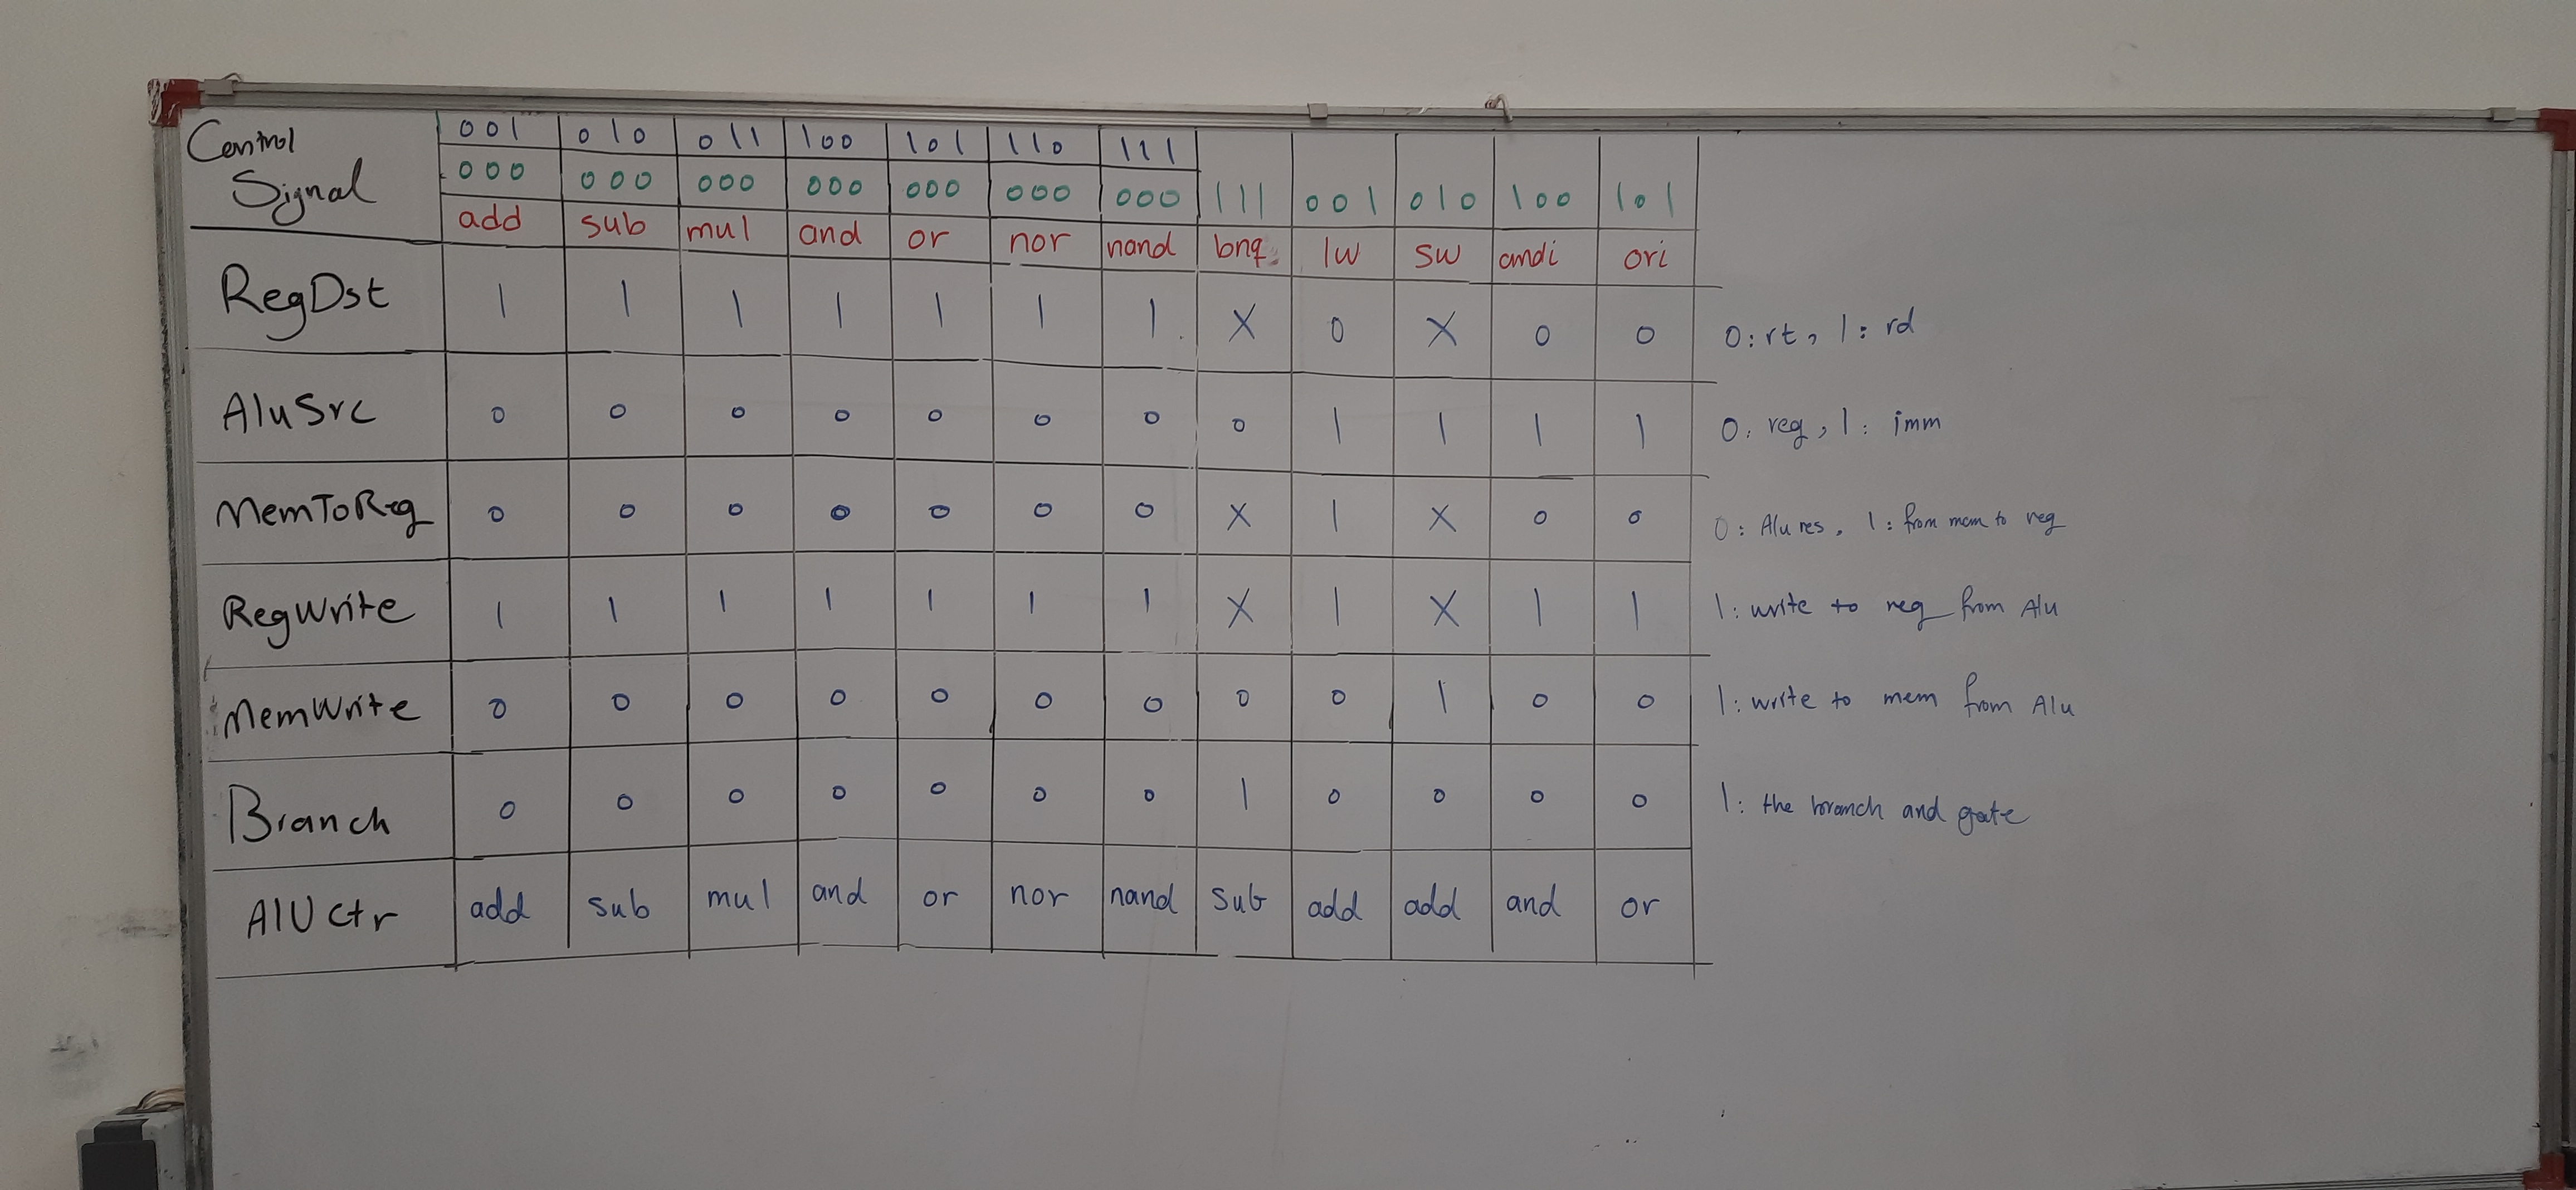 Control Signal
001 010 011 100 101 110 111
000 000 000 000 000 000 000 111 001 010 100 101
add sub mul and or nor nand bnq lw sw andi ori
RegDst 1 1 1 1 1 1 1 X 0 X 0 0 0: rt, 1: rd
AluSrc 0 0 0 0 0 0 0 0 1 1 1 1 0: reg, 1: imm
MemToReg 0 0 0 0 0 0 0 X 1 X 0 0 0: Alu res, 1: from mem to reg
RegWrite 1 1 1 1 1 1 1 X 1 X 1 1 1: write to reg from Alu
MemWrite 0 0 0 0 0 0 0 0 0 1 0 0 1: write to mem from Alu
Branch 0 0 0 0 0 0 0 1 0 0 0 0 1: the branch and gate
AlUCtr add sub mul and or nor nand sub add add and or